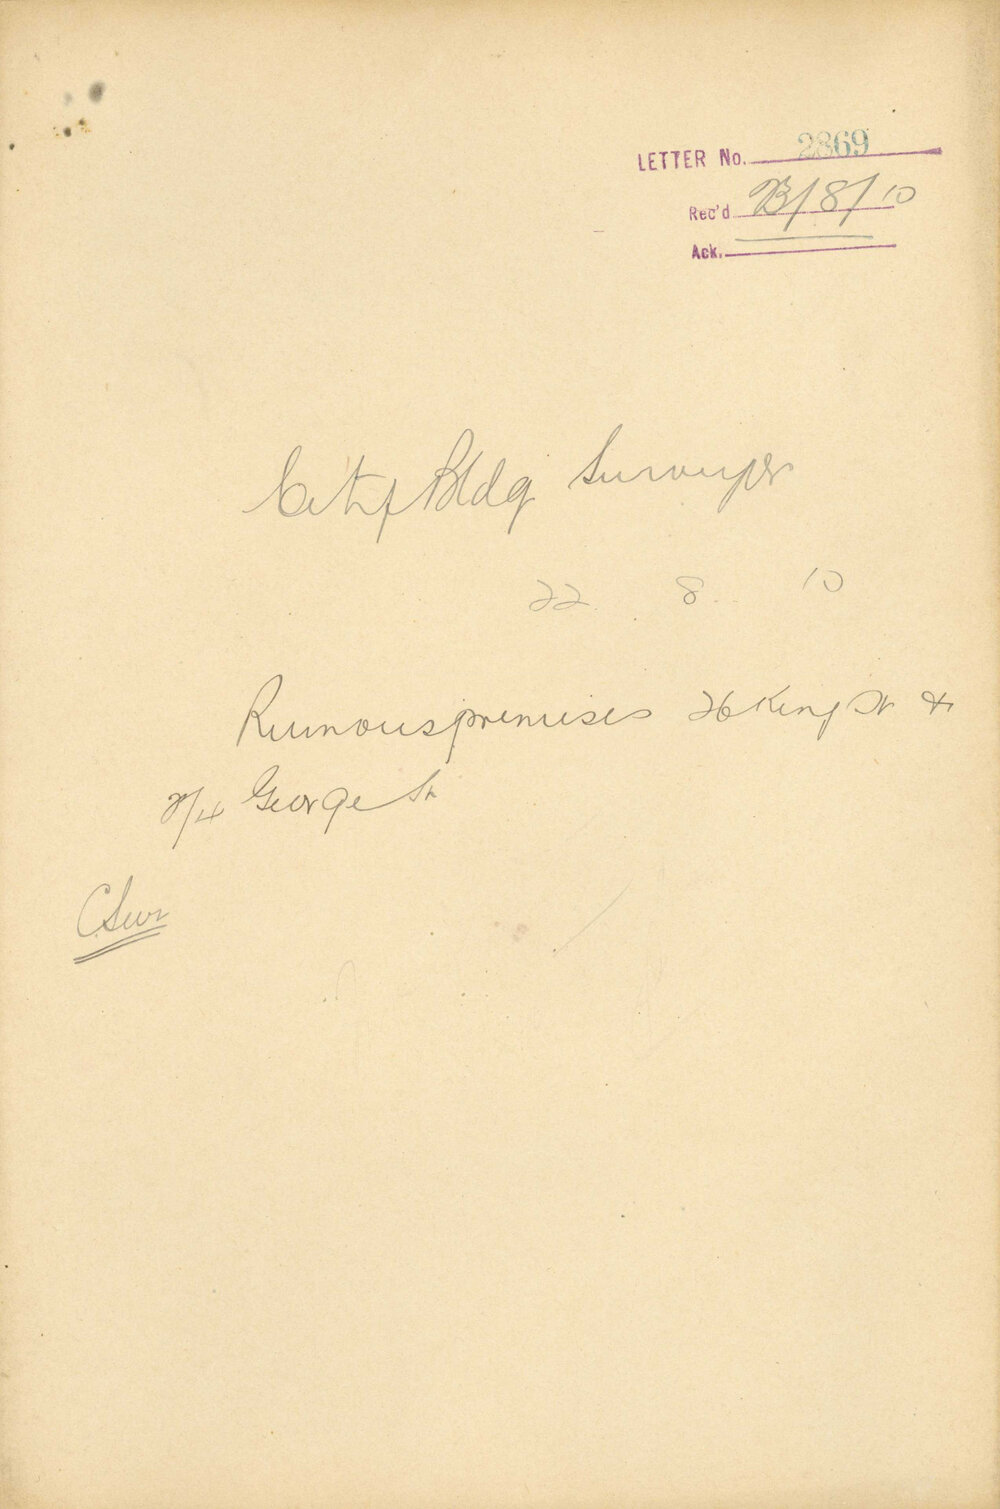 LETTER No. 2869
Rec'd 23/8/10
Ack.
City Bldg Surveyor
22. 8. 10
Ruinous premises 26 King St &
2/4 George St
C. Sur